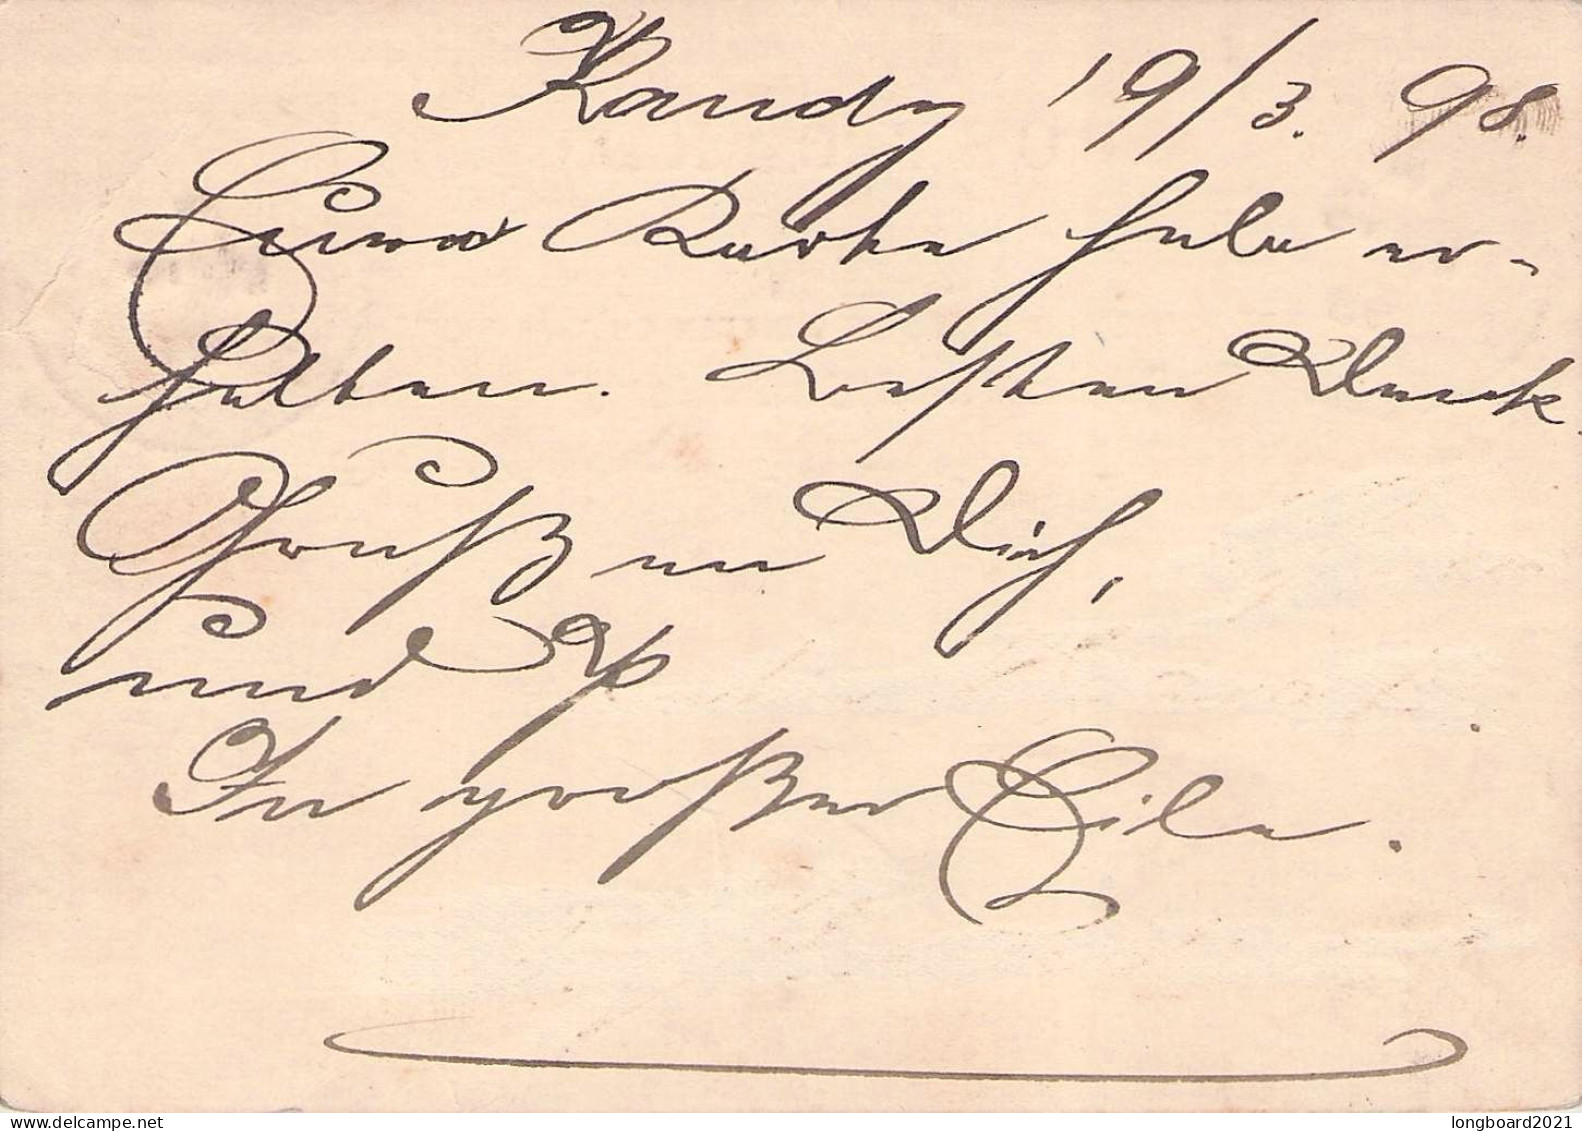 Kandy 19/3. 98.
Eure Karte habe er-
halten. Besten Dank.
Gruß an Dich,
und
In großer Eile.
longboard2021